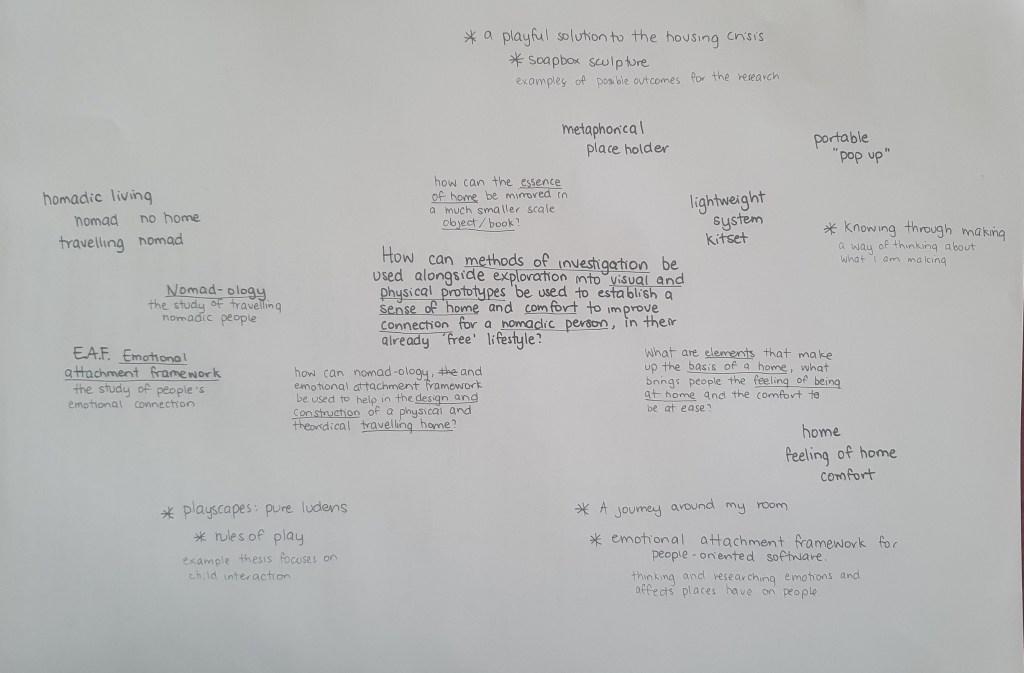 * a playful solution to the housing crisis
* soapbox sculpture
examples of possible outcomes for the research
metaphorical
place holder
portable
"pop up"
how can the essence
of home be mirrored in
a much smaller scale
object/book?
nomadic living
nomad no home
travelling nomad
lightweight
system
kitset
* Knowing through making
a way of thinking about
what I am making
How can methods of investigation be
used alongside exploration into visual and
physical prototypes be used to establish a
sense of home and comfort to improve
connection for a nomadic person, in their
already 'free' lifestyle?
Nomad-ology
the study of travelling
nomadic people
E.A.F. Emotional
attachment framework
the study of people's
emotional connection
how can nomad-ology, the and
emotional attachment framework
be used to help in the design and
construction of a physical and
theoridical travelling home?
What are elements that make
up the basis of a home, what
brings people the feeling of being
at home and the comfort to
be at ease?
home
feeling of home
comfort
* playscapes: pure ludens
* rules of play
example thesis focuses on
child interaction
* A journey around my room
* emotional attachment framework for
people-oriented software.
thinking and researching emotions and
affects places have on people